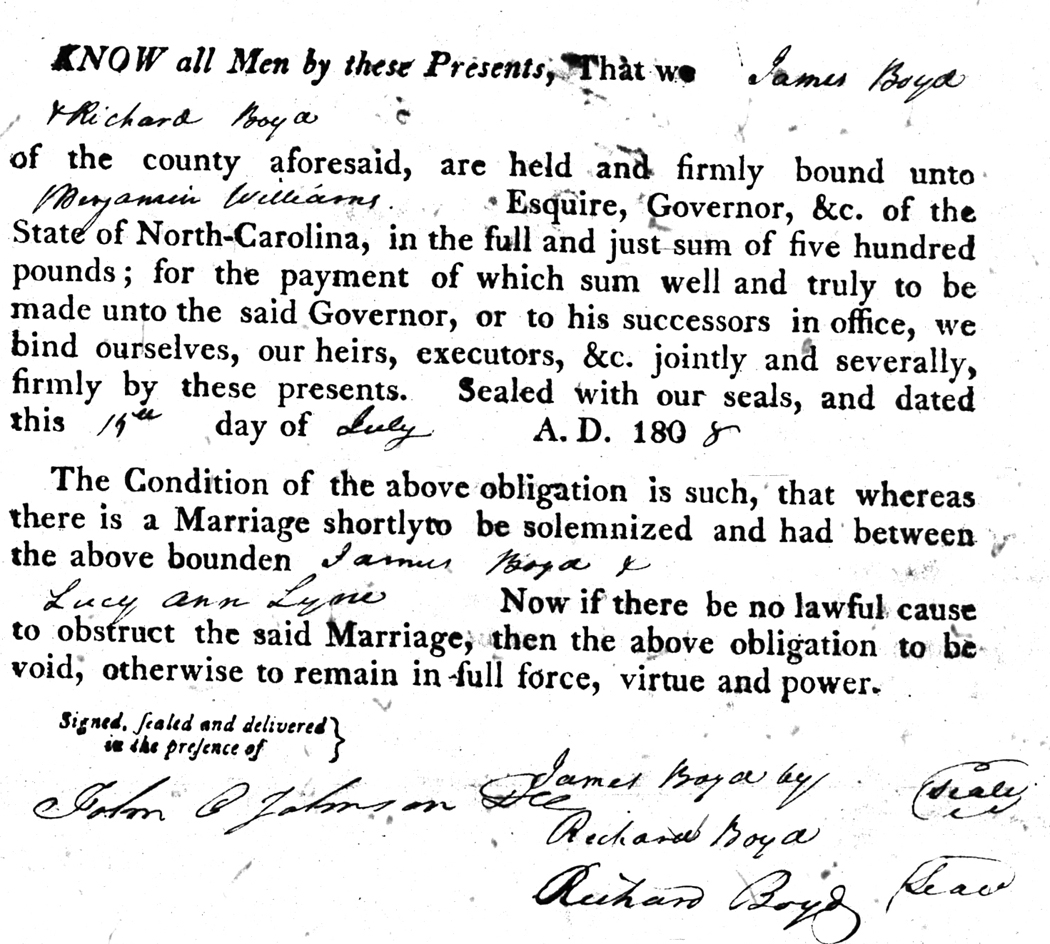 KNOW all Men by these Presents, That we James Boyd
& Richard Boyd
of the county aforesaid, are held and firmly bound unto
Benjamin Williams. Esquire, Governor, &c. of the
State of North-Carolina, in the full and just sum of five hundred
pounds; for the payment of which sum well and truly to be
made unto the said Governor, or to his successors in office, we
bind ourselves, our heirs, executors, &c. jointly and severally,
firmly by these presents. Sealed with our seals, and dated
this day of July A. D. 1808
The Condition of the above obligation is such, that whereas
there is a Marriage shortly to be solemnized and had between
the above bounden James Boyd &
Lucy Ann Lyne Now if there be no lawful cause
to obstruct the said Marriage, then the above obligation to be
void, otherwise to remain in full force, virtue and power.
Signed, ſealed and delivered }
in the preſence of
James Boyd by (Seal)
John C Johnson
Richard Boyd
Richard Boyd (Seal)